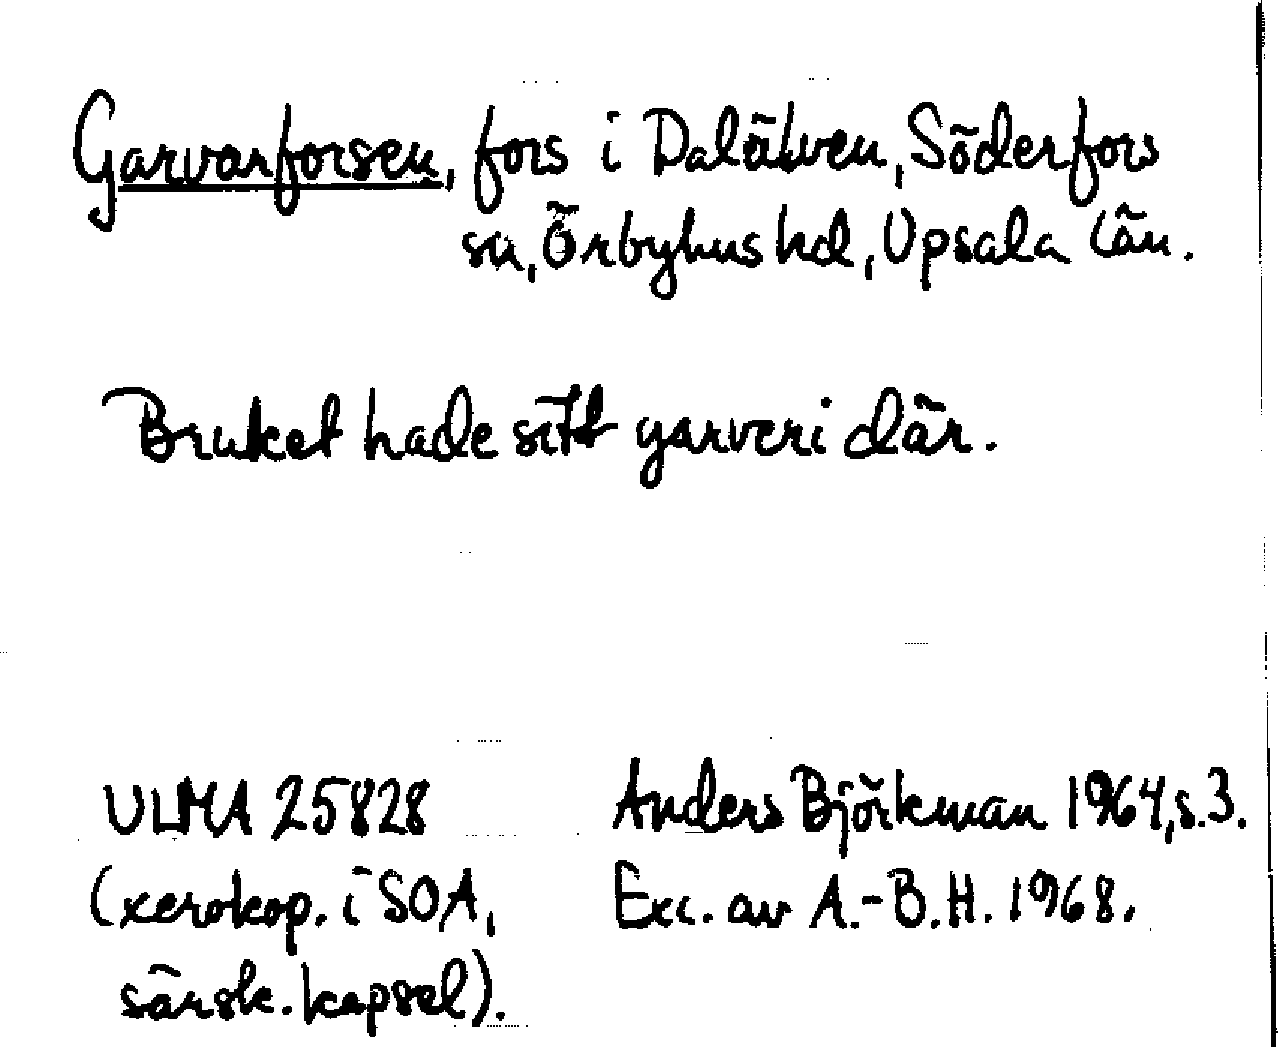 Garvarforsen, fors i Dalälven, Söderfors
sn, Örbyhus hd, Upsala län.
Bruket hade sitt garveri där.
ULMA 25828
(xerokop. i SOA,
särsk. kapsel).
Anders Björkman 1964, s. 3.
Exc. av A.-B. H. 1968.